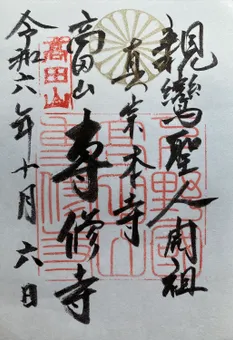 親鸞聖人開祖
真宗本寺
高田山
専修寺
令和六年十月六日
高田山